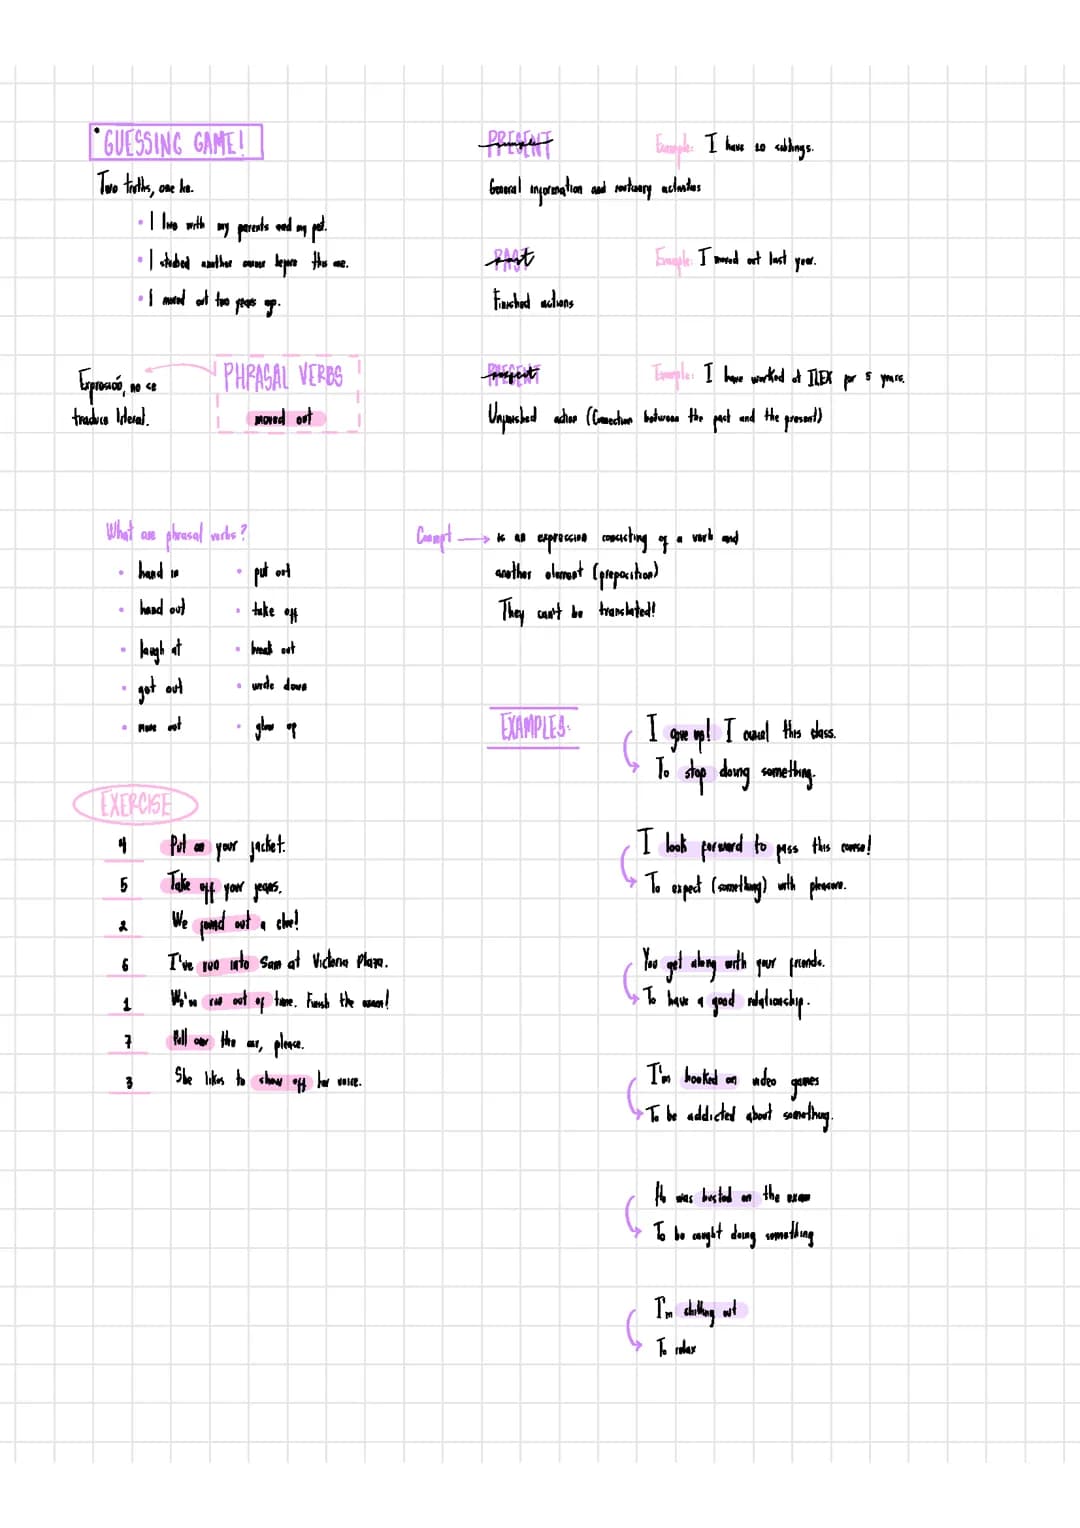 GUESSING GAME!
Two truths, one lie.
• I live with my parents and my pet.
• I studied another course before this one.
• I moved out two years ago.
PRESENT
simple
Example: I have 10 siblings.
General information and routinary activities
PAST
past
Example: I moved out last year.
Finished actions
PRESENT
perfect
Example: I have worked at ILEX for 5 years.
Unfinished action (Connection between the past and the present)
PHRASAL VERBS
moved out
Expresión, no se
traduce literal.
What are phrasal verbs?
• hand in
• hand out
• laugh at
• get out
• move out
• put out
• take off
• break out
• write down
• glow up
Concept → is an expression consisting of a verb and
another element (preposition)
They can't be translated!
EXERCISE
4 Put on your jacket.
5 Take off your jeans.
2 We found out a clue!
6 I've run into Sam at Victoria Plaza.
1 We're run out of time. Finish the exam!
7 Pull over the car, please.
3 She likes to show off her voice.
EXAMPLES:
I give up! I cancel this class.
To stop doing something.
I look forward to pass this course!
To expect (something) with pleasure.
You get along with your friends.
To have a good relationship.
I'm hooked on video games
To be addicted about something.
He was busted on the exam
To be caught doing something
I'm chilling out
To relax